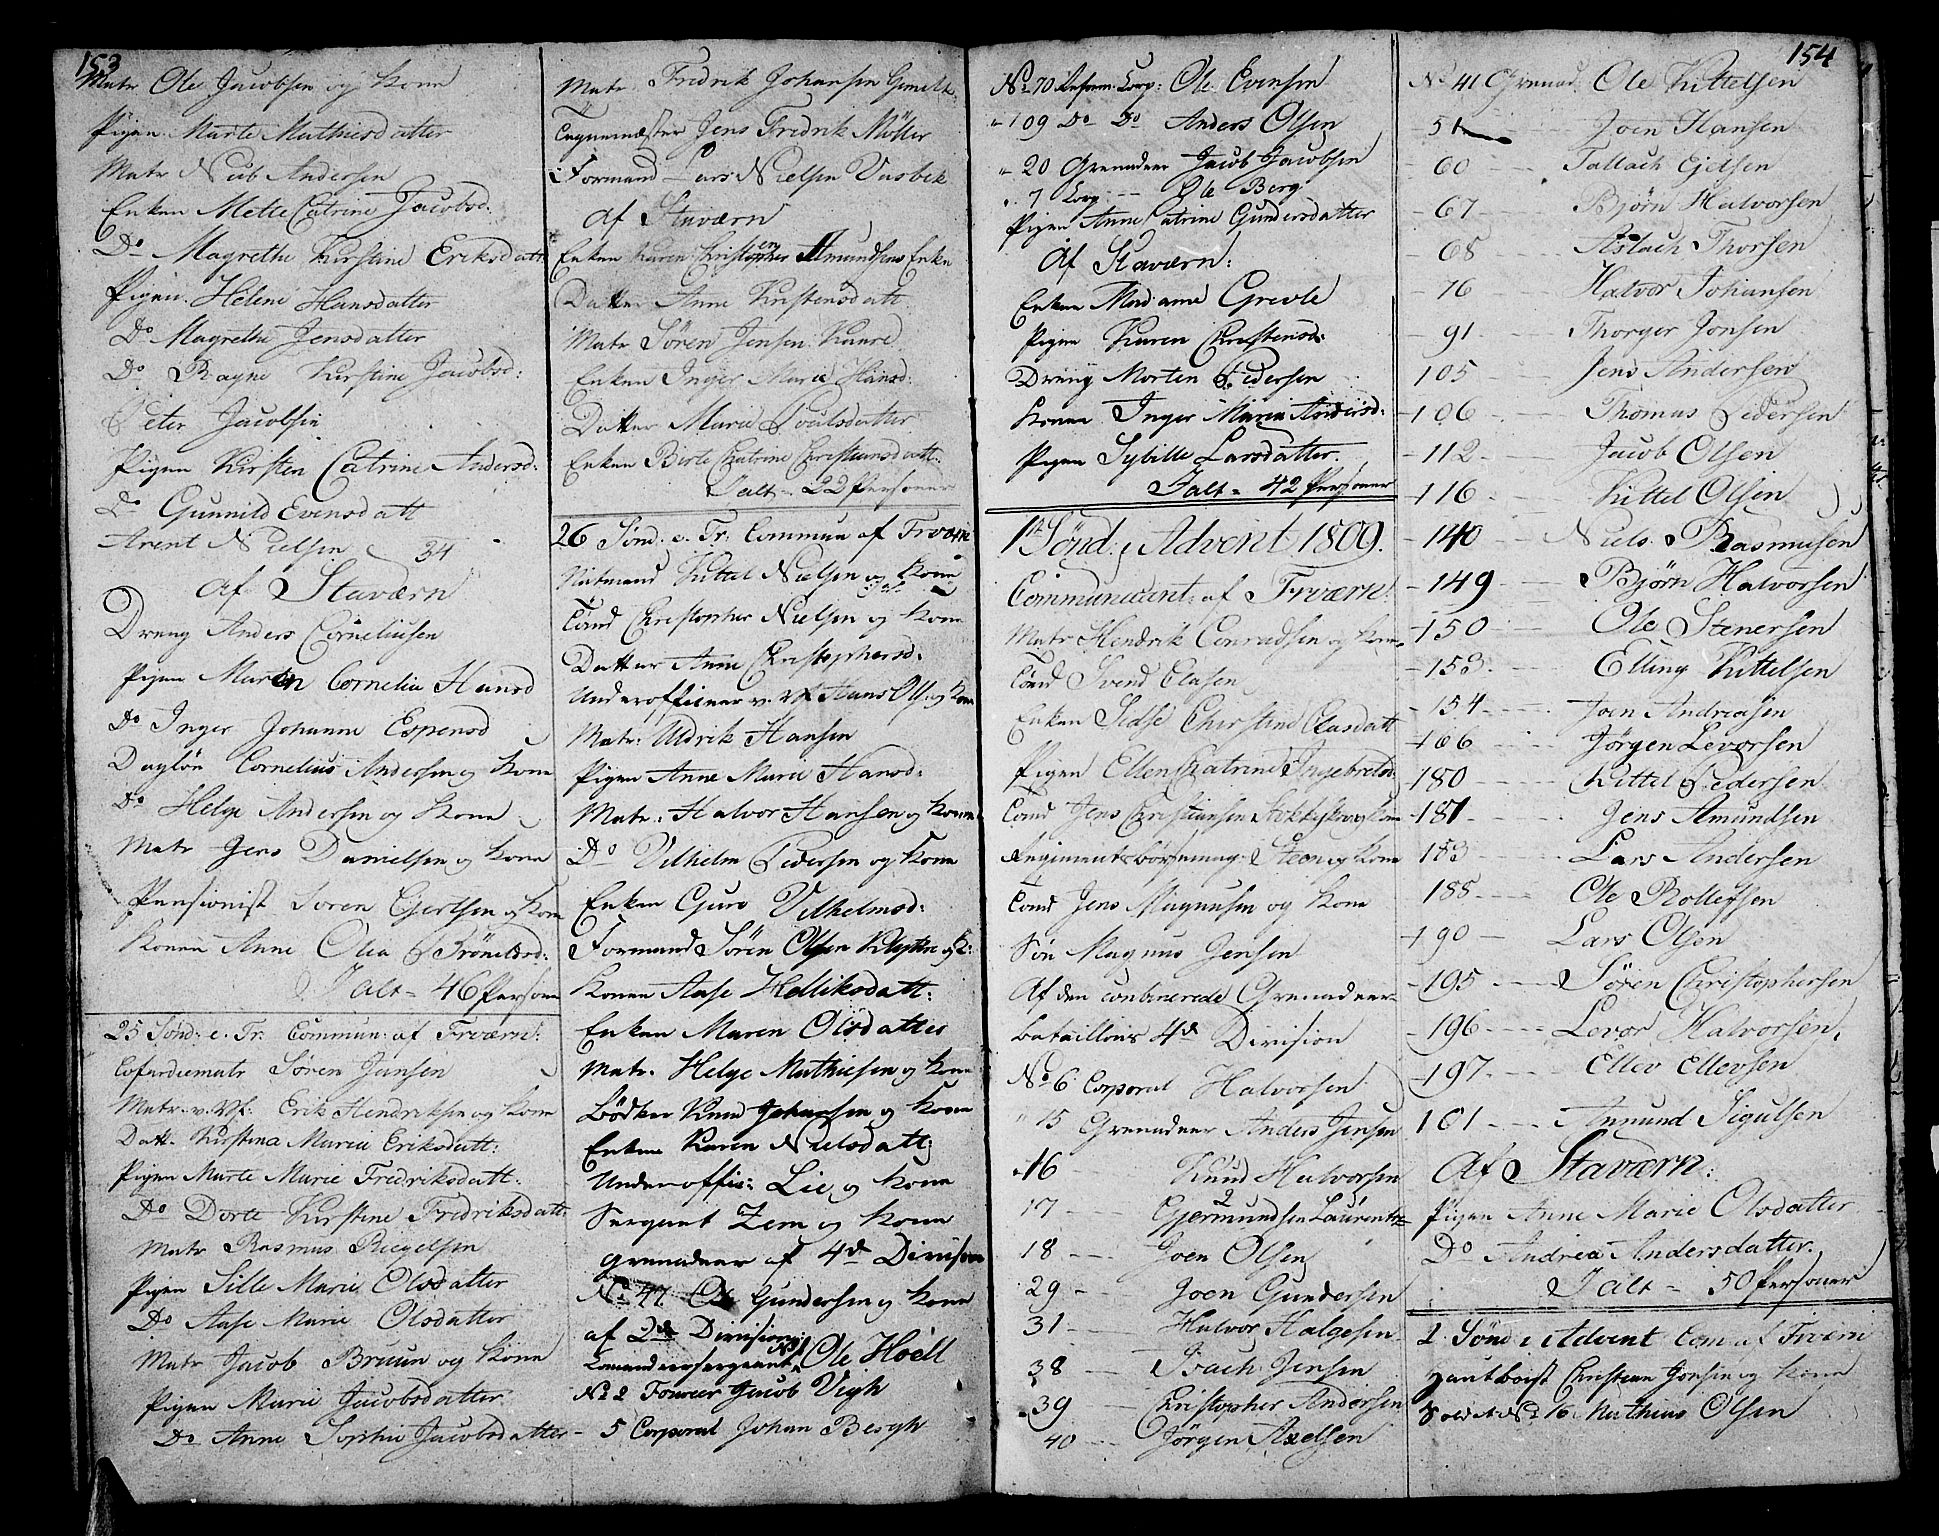 153
Matr Ole Jacobsen og Kone
Pigen Marte Mathiesdatter
Matr Niels Andersen
Enken Mette Catrine Jacobsd.
Do Magrethe Kirstine Eriksdatt
Pigen Helene Hansdatter
Do Magrethe Jensdatter
Do Ragne Kirstine Jacobsd:
Peter Jacobsen
Pigen Kirsten Catrine Andersd:
Do Gunnild Evensdatt
Arent Nielsen 34
af Staværn
Dreng Anders Corneliusen
Pigen Maren Cornelia Hansd
Do Inger Johanne Espensd
Dagløn Cornelius Andersen og Kone
Do Helge Andersen og Kone
Matr Jens Danielsen og Kone
Pensionist Søren Gjertsen og Kone
Konen Anne Olea
Ialt = 46 Persone
25 Sønd: e. Tr: Commun: af Frværn:
Cofardiematr Søren Jansen
Matr. v. Vf: Erik Hendriksen og Kone
Datt. Kirstina Maria Eriksdatt:
Pigen Marte Marie Fredriksdatt:
Do Dorte Kirstine Fredriksdatt:
Matr Rasmus Riegelsen
Pigen Sille Marie Olsdatter
Do Aase Marie Olsdatter
Matr Jacob Bruun og Kone
Pigen Marie Jacobsdatter
Do Anne Sophie Jacobsdatter
Matr. Fredrik Johansen
Tugtemester Jens Fredrik Møller
Formand Lars Nielsen Vasbek
af Staværn
Enken Karen Christophersen Amundsens Enke
Datter Anne Kirstensdatt
Matr Søren Jensen
Enken Inger Marie Hansd:
Datter Marie Poulsdatter
Enken Birte Catrine Christiansdatt:
Ialt = 22 Personer
26 Sønd: e. Tr: Commun af Frværn
Kittel Nielsen og Kone
Tømd Christopher Nielsen og Kone
Datter Anne Christophersd:
Underofficeer v. Vf Hans Ols. og Kone
Matr: Uldrik Hansen
Pigen Anne Marie Hansd:
Matr. Halvor Hansen og Kone
Do Vilhelm Pedersen og Kone
Enken Guro Vilhelmsd:
Formand Søren Olsen og K:
Konen Aase Hellıksdatt:
Enken Maren Olsdatter
Matr. Helge Mathiesen og Kone
Bødker Knud Johansen og Kone
Enken Karen Nielsdatt:
Underoffic: Lie og Kone
Sergeant Zem og Kone
grenadeer af 4de Division
No 47. Ole Gundersen og Kone
af 2de Division
Comandeersergeant No 1 Ole Høell
No 2 Foureer Jacob Vigh
5 Corporal Johan Bergh
No 70 Reserv. Corp: Ole Evensen
" 109 Do Do Anders Olsen
" 20 Grenadeer Jacob Jacobsen
" 7 Corp -- Ole Berg
Pigen Anne Catrine Gundersdatter
Af Staværn:
Enken Madame Grevle
Pigen Karen Christensd:
Dreng Morten Pedersen
Konen Inger Maria Andersd:
Pigen Sybille Larsdatter.
Ialt = 42 Personer
1te Sønd: i Advent 1809.
Communicant: af Frværn:
Matr Hendrik Conradsen og Kone
Tømd Svend Elasen
Enken Sidse Christine Clasdatt
Pigen Ellen Catrine Ingebretsd:
Tømd Jens Christiansen og Kone
Regimentsbørsemag: Steen og Kone
Tømd Jens Magnusen og Kone
Søn Magnus Jensen
Af den combinerede Grenadeer-
bataillons 4de Division
No 6 Corporal Halvorsen
" 15 Grenadeer Anders Jensen
16 - Knud Halvorsen
17 --- Gjermundsen Laurents
18 --- Joen Olsen
29 - Joen Gundersen
31 --- Halvor Halgesen
38 --- Isach Jensen
39 --- Christopher Andersen
40 --- Jørgen Axelsen
154
No 41 Grenad. Ole Kittelsen
- 51 --- Joen Hansen
- 60 --- Tallach Gjelsen
- 67 --- Bjørn Halvorsen
- 68 --- Aslach Thorsen
- 76 --- Halvor Johansen
- 91 --- Thorger Jonsen
- 105 --- Jens Andersen
- 106 --- Thomas Pedersen
- 112 --- Jacob Olsen
- 116 --- Kittel Olsen
- 140 --- Niels Rasmusen
- 149 --- Bjørn Halvorsen
- 150 --- Ole Stenersen
- 153 --- Elling Kittelsen
- 154 --- Joen Andreasen
- 166 --- Jørgen Levorsen
180 --- Kittel Pedersen
- 181 --- Jens Amundsen
183 --- Lars Andersen
188 --- Ole Rollefsen
- 190 --- Lars Olsen
- 195 --- Søren Christophersen
- 196 --- Levor Halvorsen
- 197 --- Ellev Ellevsen
161 --- Amund Sigulsen
Af Staværn:
Pigen Anne Marie Olsdatter
Do Andrea Andersdatter
Ialt = 50 Personer
2 Sønd i Advent Com: af Frværn
Hautboist Christian Jonsen og Kone
Soldat No 16 Mathias Olsen